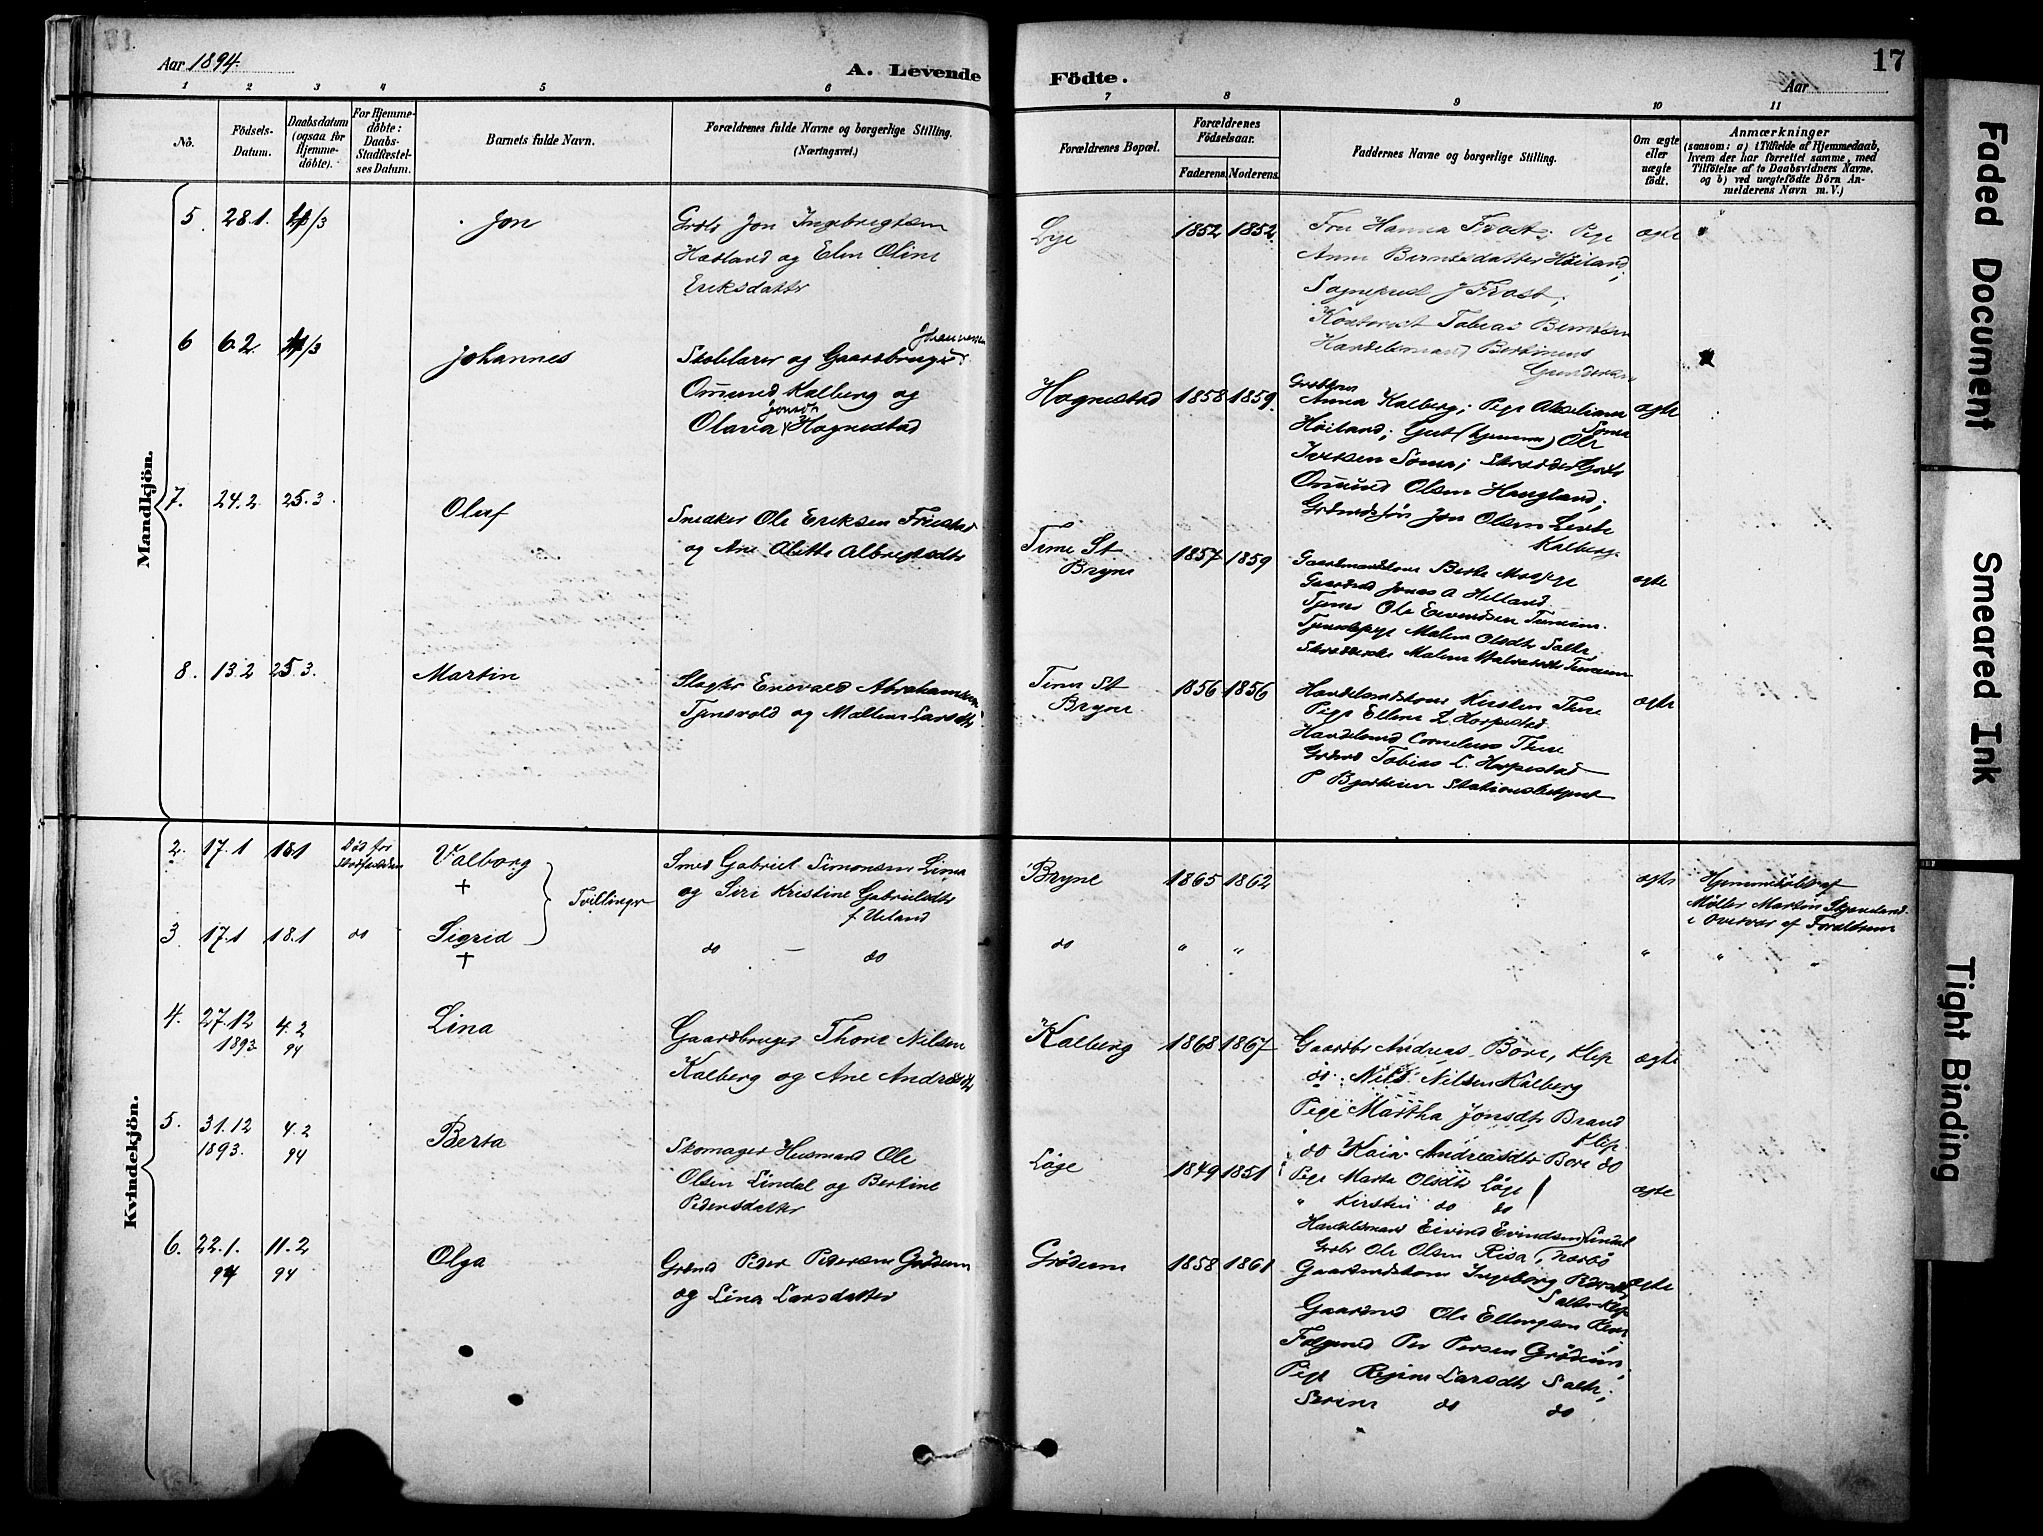 Aar 1894.
A. Levende Födte.
17
Aar
1 2 3 4 5 6 7 8 9 10 11
No.
Födsels-Datum.
Daabsdatum (ogsaa for Hjemme-döbte).
For Hjemme-döbte: Daabs-Stadfæstel-ses Datum.
Barnets fulde Navn.
Forældrenes fulde Navne og borgerlige Stilling.
(Næringsvei.)
Forældrenes Bopæl.
Forældrenes Födselsaar.
Faderens. Moderens.
Faddernes Navne og borgerlige Stilling.
Om ægte eller uægte födt.
Anmærkninger
(saasom: a) i Tilfælde af Hjemmedaab,
hvem der har forrettet samme, med
Tilföielse af to Daabsvidners Navne,
og b) ved uægtefödte Börn An-
melderens Navn m. V.)
Mandkjön.
5 28.1. /3 Jon
Grdb Jon Ingebrigtsen
Haaland og Elen Oline
Eriksdatter
Lye 1852 1852
Fru Hanna Frost; Pige
Anne Berntsdatter Høiland;
Sognepræst J Frost;
Kontorist Tobias Berntsen
Handelsmand Bertinius
Gundersen
ægte
6 6.2. /3 Johannes
Johannessen
Skolelærer og Gaardbruger
Omund Kalberg og
Olava Jonsdr Hognestad
Hognestad 1858 1859.
Anna Kalberg; Pige Akseliana
Høiland; Gut (hjemme) Ole
Iversen Soma; Skræder
Omund Olsen Haugland;
Grdmdssøn Jon Olsen
Kalberg.
ægte
7. 24.2. 25.3. Oluf
Snedker Ole Eriksen Frøstad
og Ane Olette Albregtsdtr
Time St
Bryne
1857 1859
Gaardmandskone Berte
Gaardmd Jonas A Helland
Tjener Ole Eivendsen
Tjenestepige Malene Olsdtr Salte
ægte
8. 13.2 25.3. Martin
Slagter Enevald Abrahamsen
Tjensvold og Malene Larsdtr
Time St
Bryne
1856 1856
Handelsmdskone Kirsten Thuse
Pige Ellene L. Horpestad
Handelsmd Cornelius Thuse
Grdmd Tobias L. Horpestad
P Stationsbetjent
ægte
Kvindekjön.
2. 17.1 18.1 Død før Valborg
+
Tvillinger
Smed Gabriel Simonsen Lima
og Siri Kristine Gabrielsdtr
f Ueland
Bryne 1865 1862
ægte
Hjemmedøbt af
Møller Martin
i Overvær af Forældrene
3 17.1 18.1 do Sigrid
+
do — do
do " "
" " "
4. 27.12 1893 4.2 94 Lina
Gaardbruger Thore Nilsen
Kalberg og Ane Andreasdtr
Kalberg 1868 1867
Gaardbr Andreas Bore, Klep
do. Nils Nilsen Kalberg
Pige Martha Jonsdtr Brand
Klep.
do Kaia Andreasdtr Bore do
ægte
5. 31.12 1893. 4.2 94 Berta
Skomager Husmand Ole
Olsen Lindal og Bertine
Pedersdatter
Løge 1849 1851
Pige Marta Olsdtr Løge
" Kirsten do do
Handelsmand Eivind Eivindsen Lindal
Grdbr Ole Olsen Risa, Narbö
ægte
6. 22.1. 94 11.2 94 Olga
Grdmd Peder Pedersen Grødeim
og Lina Larsdatter
Grødeim 1858 1861
Gaardmdskone Ingeborg
Salte Klep
Gaardmd Ole Ellingsen
Per Persen Grødeim;
Pige Regine Larsdtr Salte;
Serine do do
ægte
Faded Document
Smeared Ink
Tight Binding